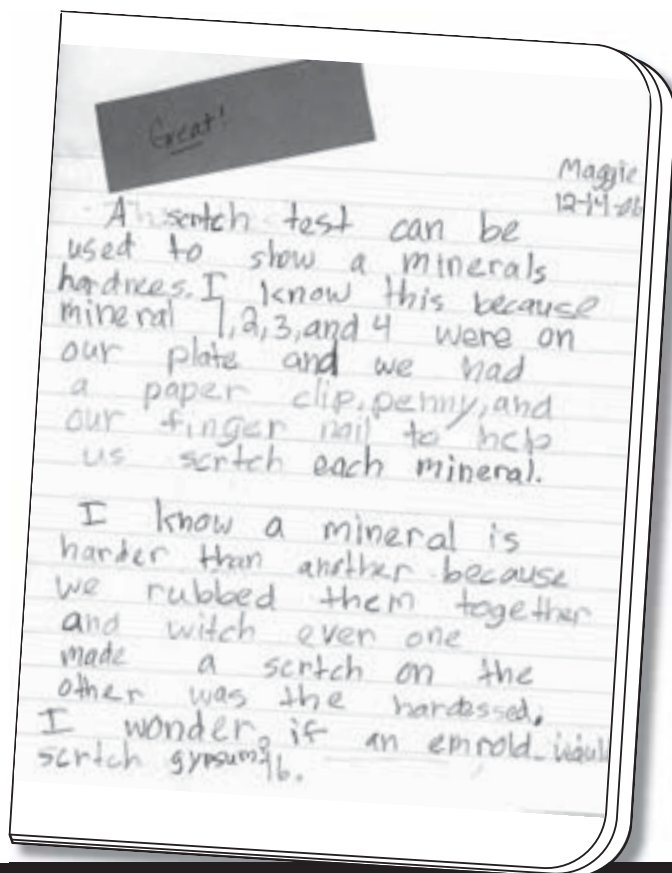 Great!
Maggie
12-14-06
A scrtch test can be
used to show a minerals
hardnees. I know this because
mineral 1,2,3, and 4 were on
our plate and we had
a paper clip, penny, and
our finger nail to help
us scrtch each mineral.
I know a mineral is
harder than another because
we rubbed them together
and witch ever one
made a scrtch on the
other was the hardessed.
I wonder if an emrold would
scrtch gypsum?